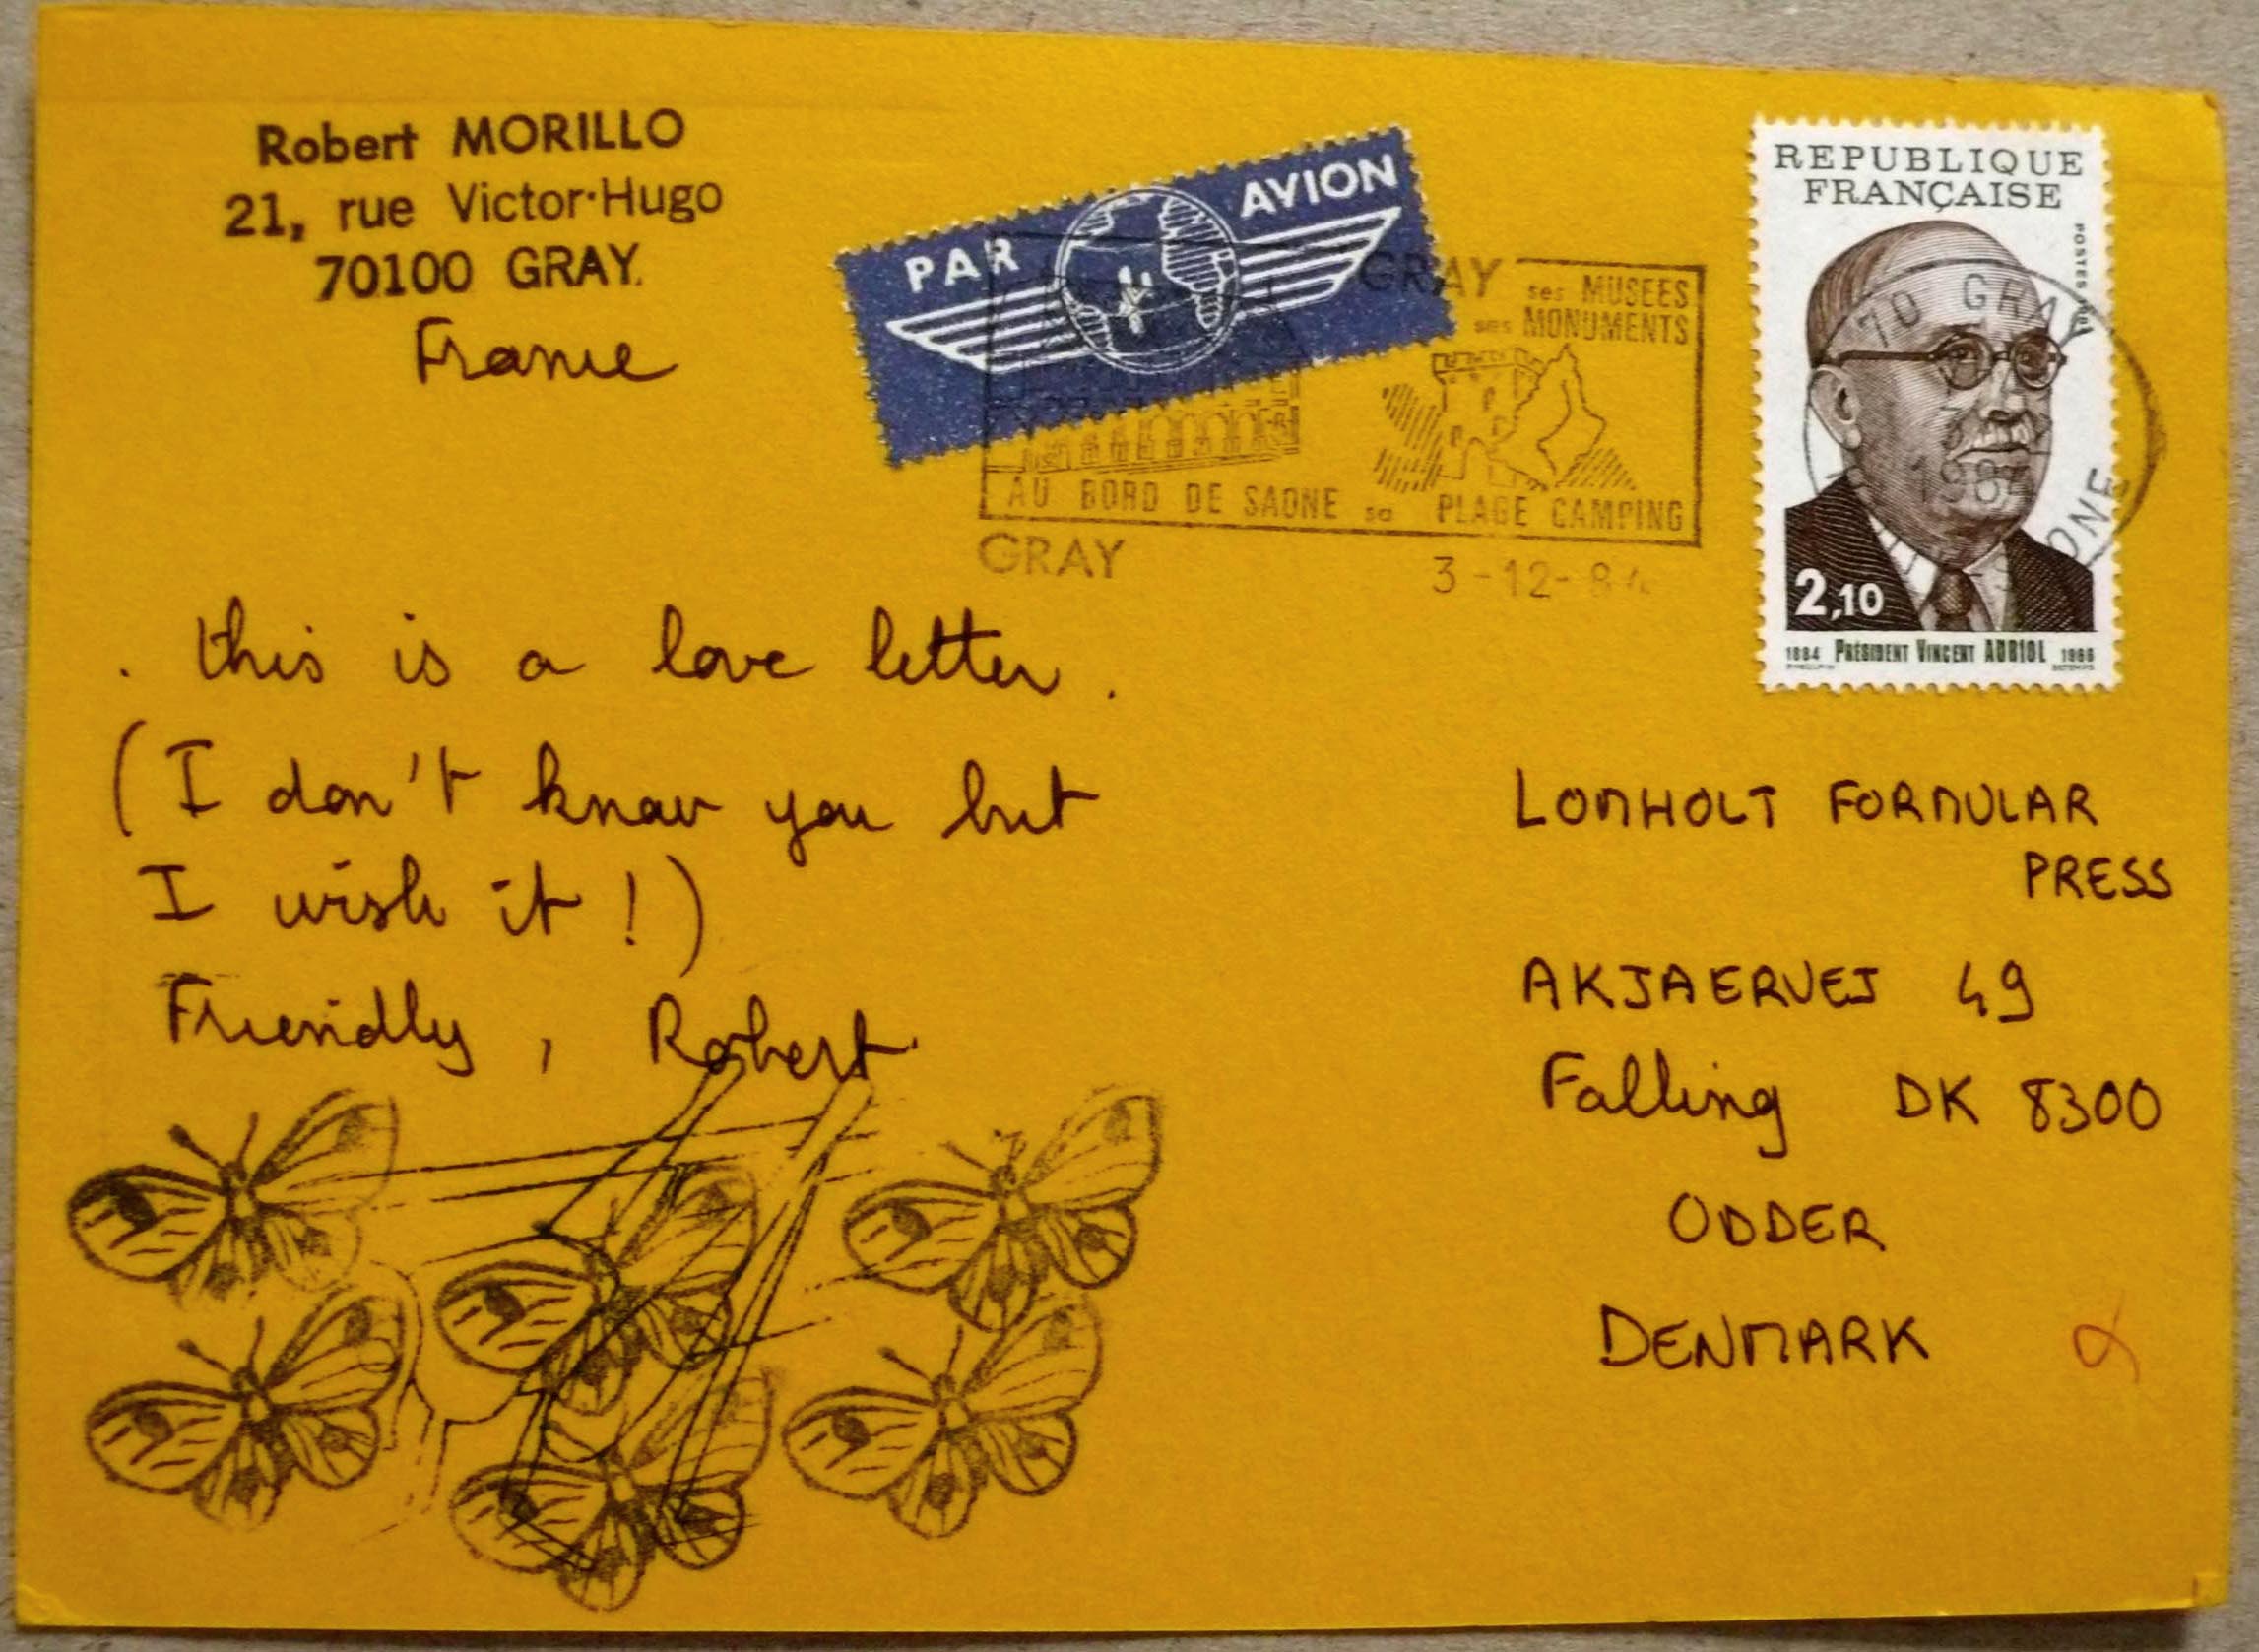 Robert MORILLO
21, rue Victor-Hugo
70100 GRAY.
France
PAR AVION
GRAY ses MUSEES
ses MONUMENTS
AU BORD DE SAONE sa PLAGE CAMPING
GRAY 3-12-84
REPUBLIQUE
FRANÇAISE
POSTES
70 GRAY
2,10
1884 PRÉSIDENT VINCENT AURIOL 1966
. this is a love letter.
(I don't know you but
I wish it !)
Friendly, Robert
LOMHOLT FORMULAR
PRESS
AKJAERVEJ 49
Falling DK 8300
ODDER
DENMARK